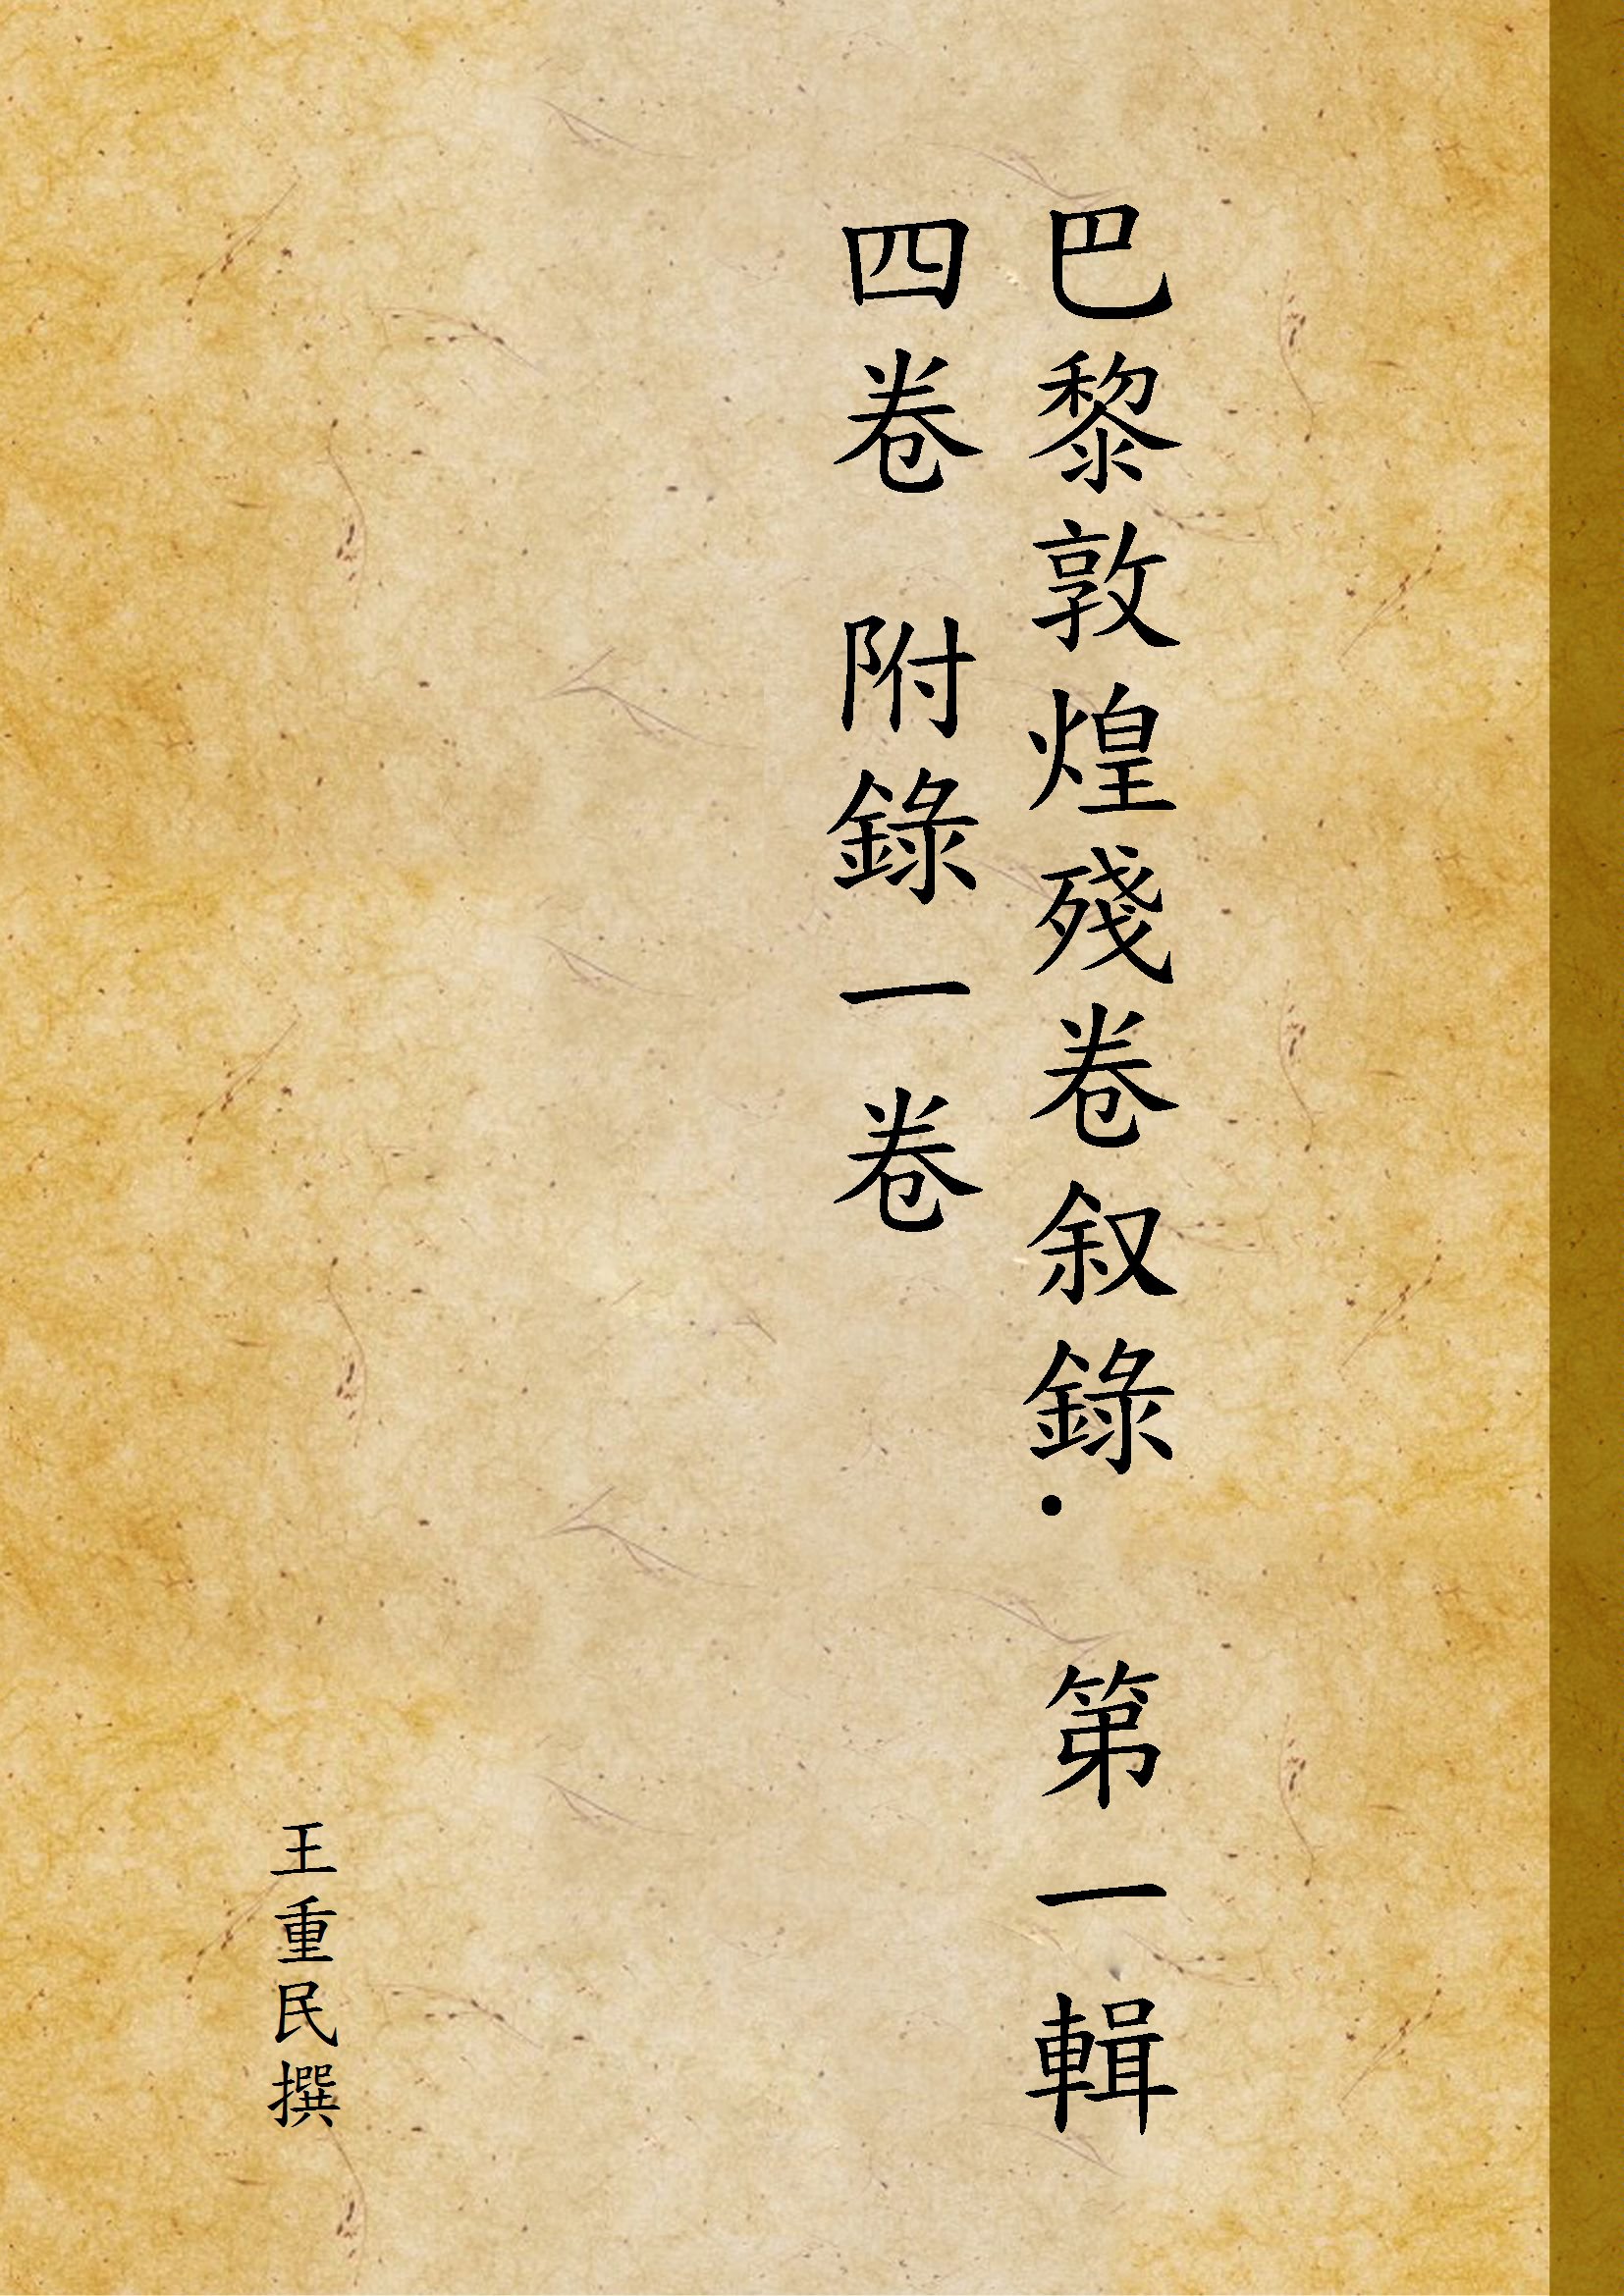 巴黎敦煌殘卷叙錄· 第一輯
四卷 附錄一卷
王重民撰